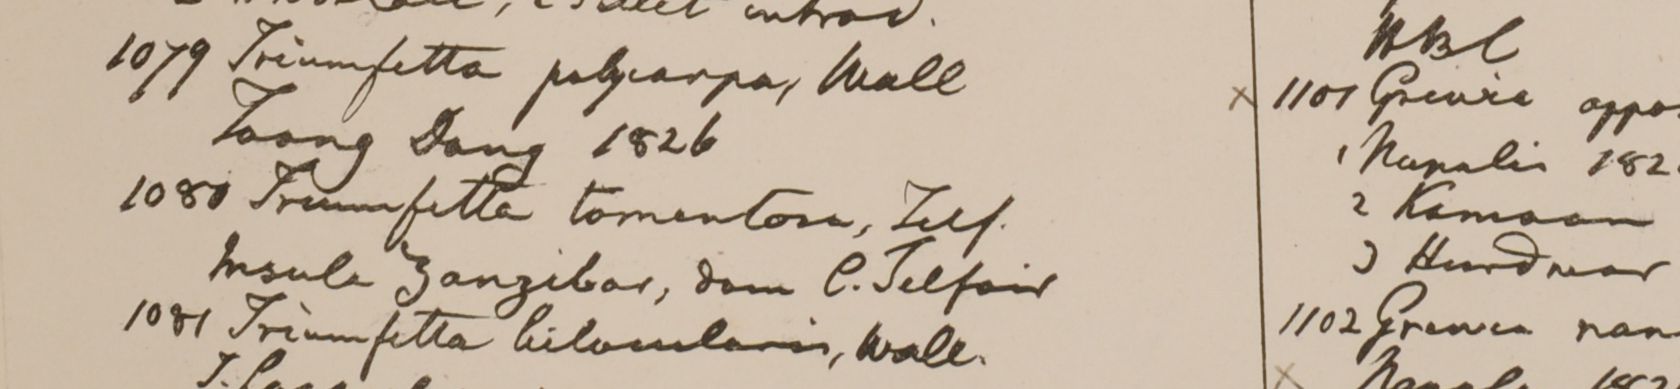 introd.
1079 Triumfetta polycarpa, Wall
Toong Dong 1826
1080 Triumfetta tomentosa, Telf.
Insula Zanzibar, dom C. Telfair
1081 Triumfetta bilocularis, Wall.
HBC
x 1101 Grewia oppo
1 Napalis 182
2 Kamaon
3 Hurdwar
1102 Grewia nan
x Napal 182